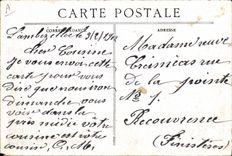 CARTE POSTALE
CORRESPONDANCE
Lambézellec le 31/2/
Cher Cousine
je vous envoi cette
carte pour vous
Dire que nous iron
dimanche vous
voir dans la
près midée votre
cousine est votre
cousin P. M.
Madame veuve
rue
de la pointe
No 1.
Recouvrence
(Finistère)